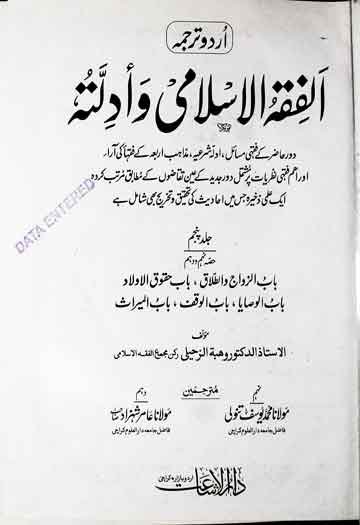 اُردو ترجمہ
اَلفِقهُ الاِسْلَامِی وَأدِلَّتُهٗ
دور حاضر کے فقہی مسائل، ادلہ شرعیہ، مذاہب اربعہ کے فقہا کی آراء
اور اہم فقہی نظریات پر مشتمل دور جدید کے عین تقاضوں کے مطابق مرتب کردہ
ایک علمی ذخیرہ جس میں احادیث کی تحقیق و تخریج بھی شامل ہے
جلد پنجم
حصہ نہم و دہم
بابُ الزواج والطلاق، باب حقوق الاولاد
بابُ الوصایا، بابُ الوقف، بابُ المیراث
مؤلف
الاستاذ الدکتور وھبة الزحیلی رکن مجمع الفقه الاسلامی
مترجمین
نہم
مولانا محمد یوسف تنولی
فاضل جامعہ دارالعلوم کراچی
دہم
مولانا عامر شہزاد
فاضل جامعہ دارالعلوم کراچی
دارالاشاعت اردو بازار کراچی
DATA ENTERED